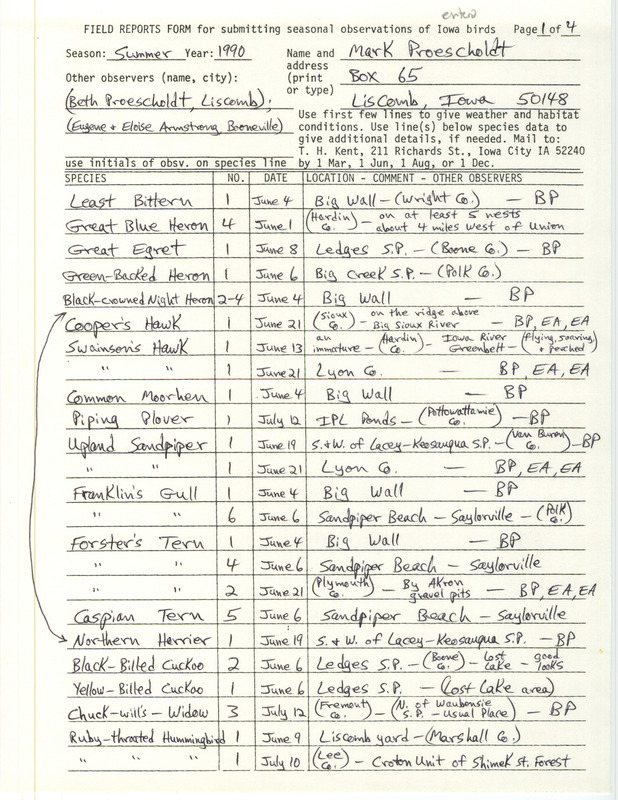 enter
FIELD REPORTS FORM for submitting seasonal observations of Iowa birds Page 1 of 4
Season: Summer Year: 1990
Name and address (print or type) Mark Proescholdt
Box 65
Liscomb, Iowa 50148
Other observers (name, city):
(Beth Proescholdt, Liscomb);
(Eugene + Eloise Armstrong, Booneville)
Use first few lines to give weather and habitat
conditions. Use line(s) below species data to
give additional details, if needed. Mail to:
T. H. Kent, 211 Richards St., Iowa City IA 52240
use initials of obsv. on species line by 1 Mar, 1 Jun, 1 Aug, or 1 Dec.
SPECIES NO. DATE LOCATION - COMMENT - OTHER OBSERVERS
Least Bittern 1 June 4 Big Wall - (Wright Co.) - BP
Great Blue Heron 4 June 1 (Hardin Co.) - on at least 5 nests about 4 miles west of Union
Great Egret 1 June 8 Ledges S.P. - (Boone Co.) - BP
Green-Backed Heron 1 June 6 Big Creek S.P. - (Polk Co.)
Black-crowned Night Heron 2-4 June 4 Big Wall - BP
Cooper's Hawk 1 June 21 (Sioux Co.) - on the ridge above Big Sioux River - BP, EA, EA
Swainson's Hawk 1 June 13 an immature - (Hardin Co.) - Iowa River Greenbelt - (flying, soaring, + perched)
" " 1 June 21 Lyon Co. - BP, EA, EA
Common Moorhen 1 June 4 Big Wall - BP
Piping Plover 1 July 12 IPL Ponds - (Pottowattamie Co.) - BP
Upland Sandpiper 1 June 19 S. + W. of Lacey-Keosauqua S.P. - (Van Buren Co.) - BP
" " 1 June 21 Lyon Co. - BP, EA, EA
Franklin's Gull 1 June 4 Big Wall - BP
" " 6 June 6 Sandpiper Beach - Saylorville - (Polk Co.)
Forster's Tern 1 June 4 Big Wall - BP
" " 4 June 6 Sandpiper Beach - Saylorville
" " 2 June 21 (Plymouth Co.) - By Akron gravel pits - BP, EA, EA
Caspian Tern 5 June 6 Sandpiper Beach - Saylorville
Northern Harrier 1 June 19 S. + W. of Lacey-Keosauqua S.P. - BP
Black-Billed Cuckoo 2 June 6 Ledges S.P. - (Boone Co.) - Lost Lake - good looks
Yellow-Billed Cuckoo 1 June 6 Ledges S.P. - (Lost Lake area)
Chuck-will's-Widow 3 July 12 (Fremont Co.) - (N. of Waubonsie S.P. - usual Place) - BP
Ruby-throated Hummingbird 1 June 9 Liscomb yard - (Marshall Co.)
" " 1 July 10 (Lee Co.) - Croton Unit of Shimek St. Forest